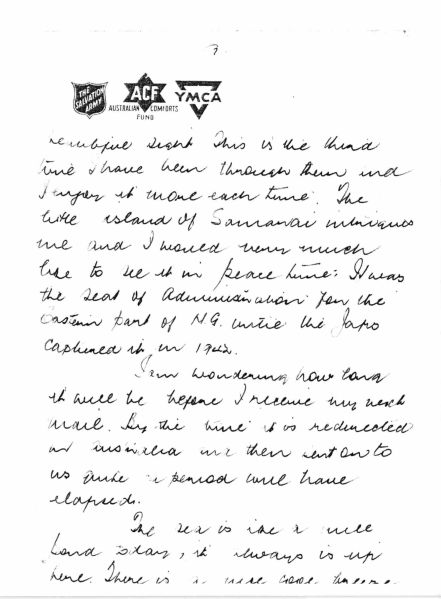 7.
THE SALVATION ARMY
ACF
AUSTRALIAN COMFORTS FUND
YMCA
beautiful sight This is the third
time I have been through them and
I enjoy it more each time. The
little island of Samarai intrigues
me and I would very much
like to see it in peace time: It was
the seat of Administration for the
Eastern part of N.G. until the Japs
captured it in 1942.
I am wondering how long
it will be before I receive my next
mail. By the time it is redirected
in Australia and then sent on to
us quite a period will have
elapsed.
The sea is like a mill
pond today, it always is up
here. There is a nice cool breeze